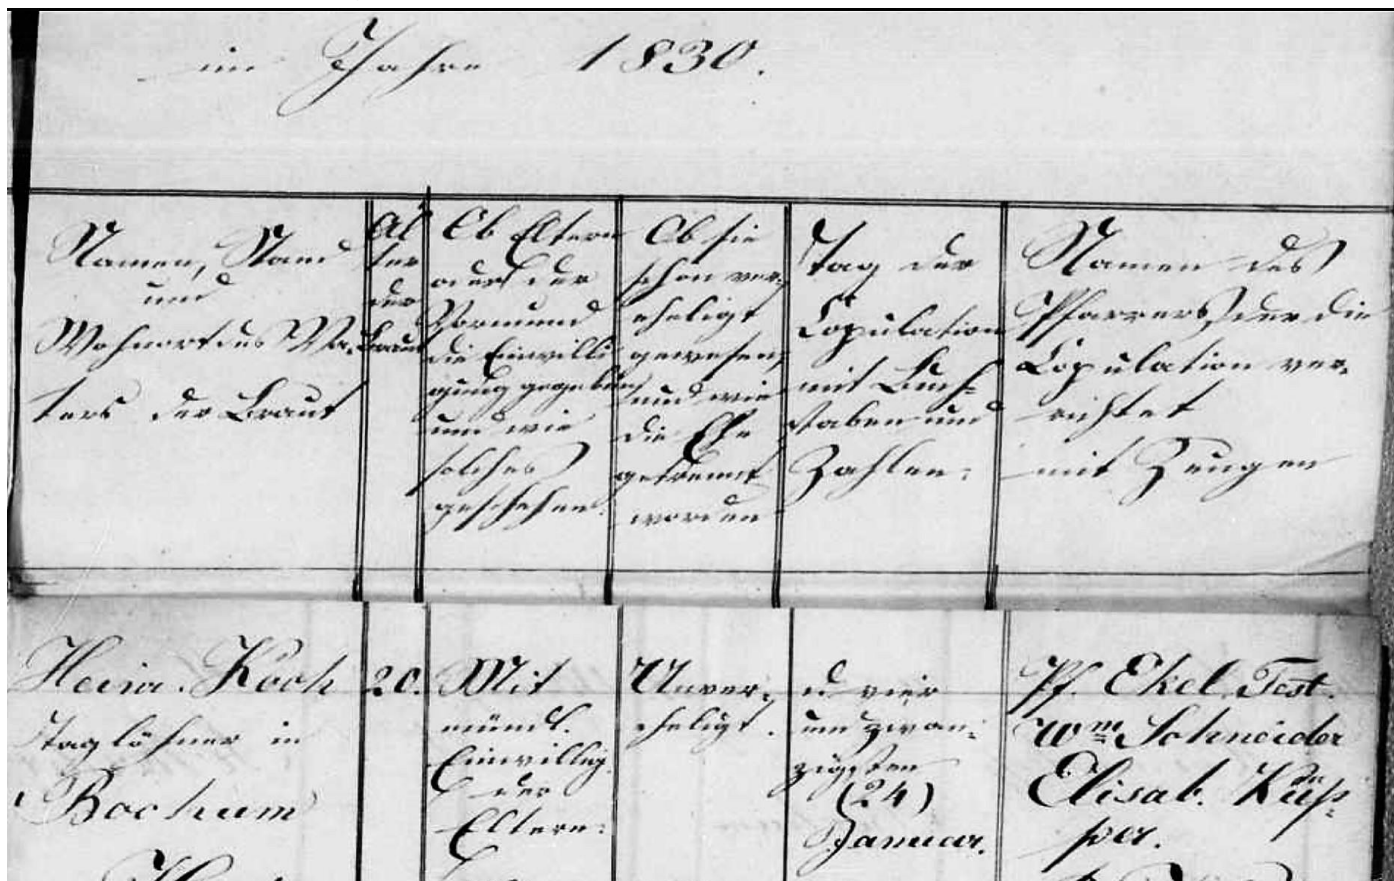 im Jahre 1830.
Namen, Stand
und
Wohnort des Va-
ters der Braut
Al
ter
der
Braut
Ob Eltern
oder der
Vormund
die Einwilli
gung gegeben
und wie
solches
geschehen.
Ob sie
schon ver-
eheligt
gewesen,
und wie
die Ehe
getrennt
worden
Tag der
Copulation
mit Buch-
staben und
Zahlen.
Namen des
Pfarrers der die
Copulation ver-
richtet
mit Zeugen
Heinr. Koch
Taglöhner in
Bochum
20.
Mit
mündl.
Einwillig.
der
Eltern.
Unver-
eheligt.
d. vier
und zwan-
zigsten
(24)
Januar.
Pf. Ekel. Test.
Wm Schneider
Elisab. Küp-
per.